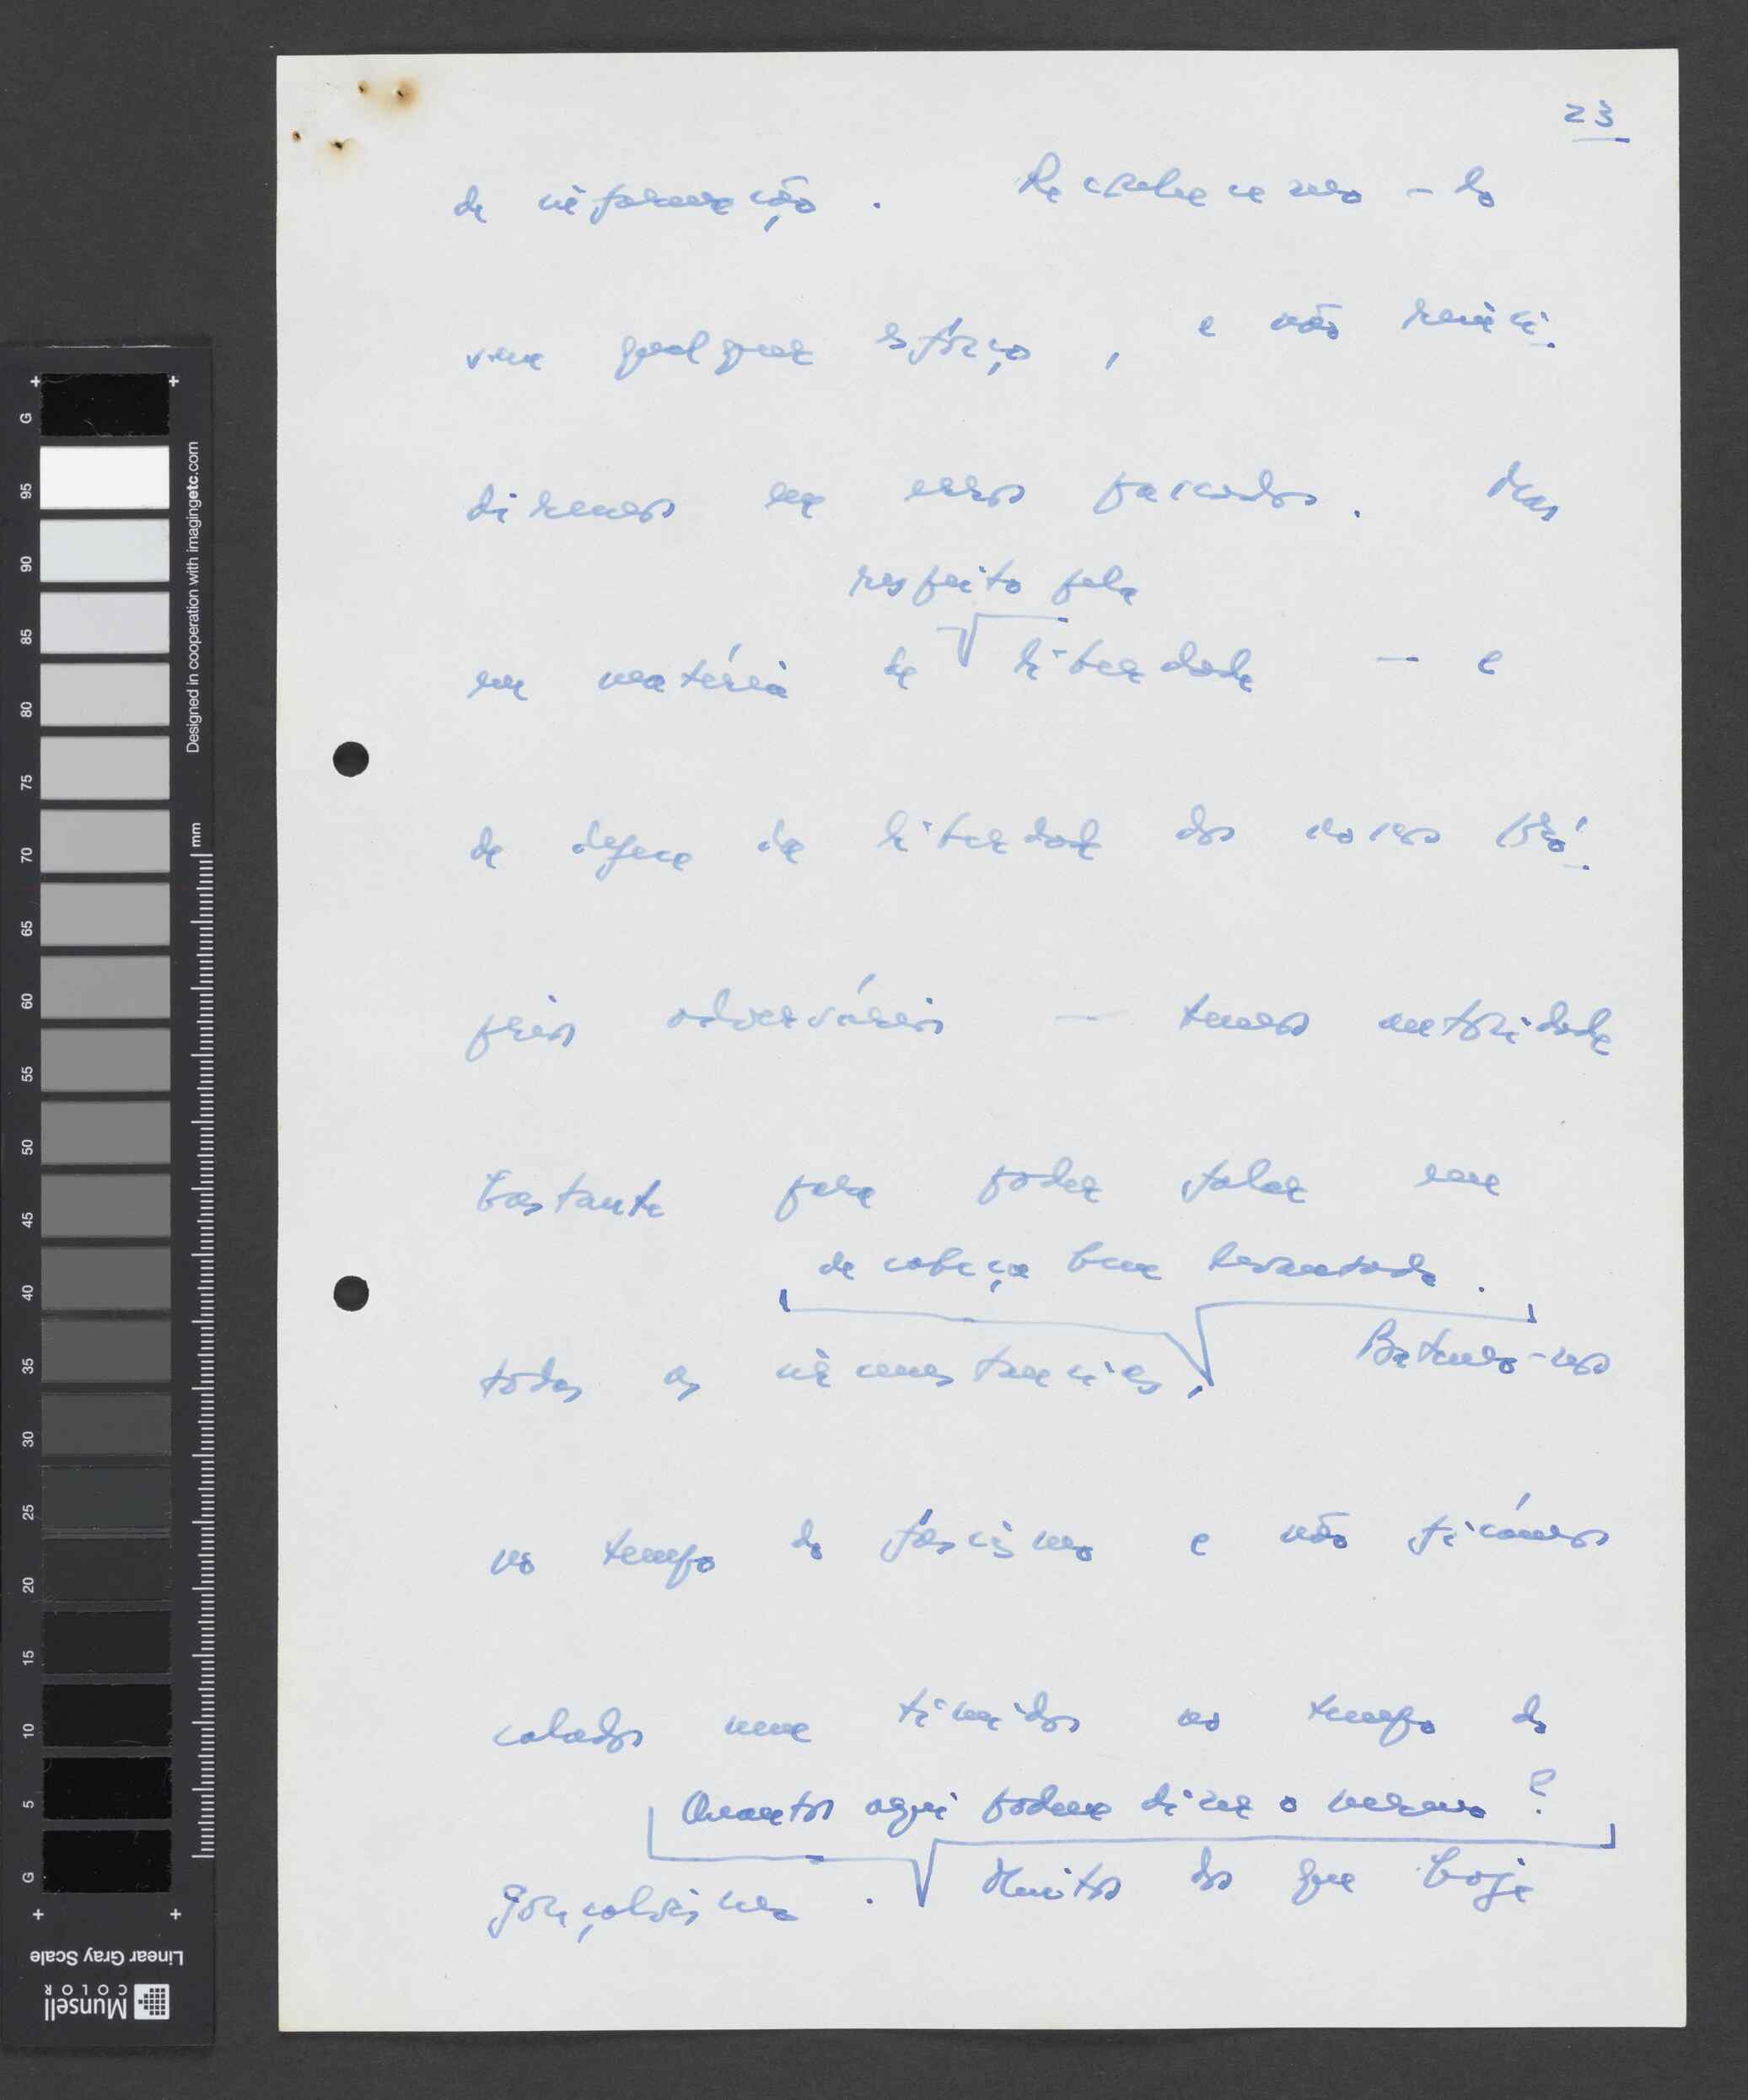 23
de informação. Reconhecemo-lo
sem qualquer esfôrço, e não reinci-
diremos em erros passados. Mas
respeito pela
em matéria de liberdade — e
de defesa da liberdade dos nossos pró-
prios adversários — temos autoridade
bastante para poder falar em
de cabeça bem levantada.
todas as circunstancias, Batemo-nos
no tempo do fascismo e não ficámos
calados nem timidos no tempo do
Quantos aqui podem dizer o mesmo?
gonçalvismo. Muitos dos que hoje
G 95 90 85 80 75 70 65 60 55 50 45 40 35 30 25 20 15 10 5 G
Designed in cooperation with imagingetc.com
mm
Linear Gray Scale
Munsell
COLOR